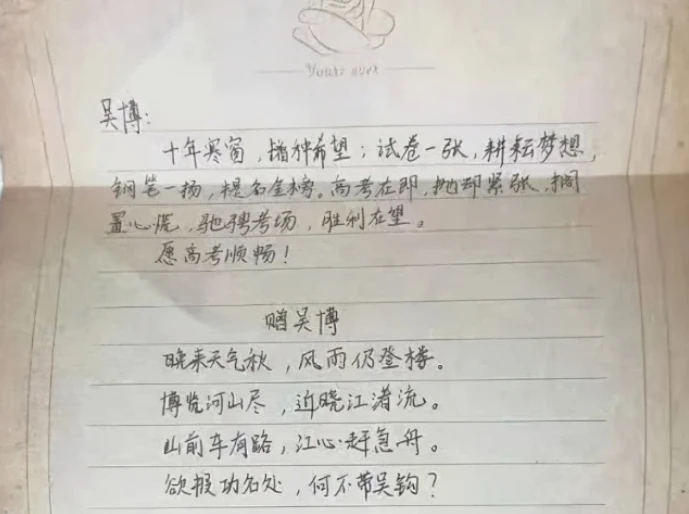 Yours ever
吴博:
十年寒窗,播种希望;试卷一张,耕耘梦想,
钢笔一扬,提名金榜。高考在即,抛却紧张,搁
置心慌,驰骋考场,胜利在望。
愿高考顺畅!
赠吴博
晚来天气秋,风雨仍登楼。
博览河山尽,近晓江渚流。
山前车有路,江心赶急舟。
欲报功名处,何不带吴钩?